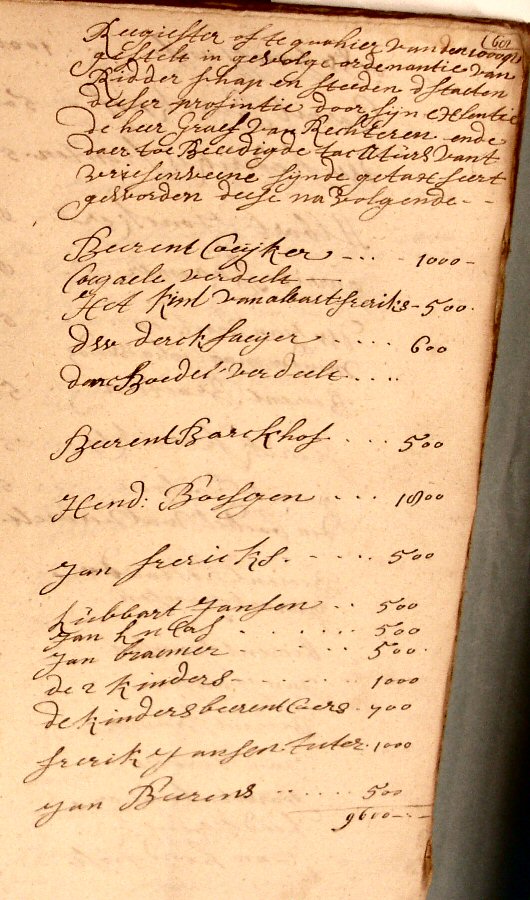 (601
Reegiester ofte quohier van den 1000 pen
gestelt in gevolg ordenantie van
Ridderschap en steeden d staeten
deeser profintie door sijn exelentie
de heer Graef van Rechteren ende
daer toe Beedigde tacxatuers vant
vriesenveene sijnde getaxseert
geworden deese navolgende - -
Beerent Coeijker - - - - 1000 -
verdeelt
Het kint van albart freriks - 500.
dw derck Jaeger . . . . . 600
den Boedel verdeelt . . . .
Beerent Barckhof . . . . 500
Hend: Boesgen . . . 1800
Jan frericks. - . . . . 500
Lübbart Jansen . . 500
Jan . . . . . . 500
Jan braemer . . . . 500.
de 2 kinders - . . . . . 1000
de kinders beerent Coers . 700
frerik Jansen tuter . 1000
Jan Beerens . . . . . . 500
9600 - . -